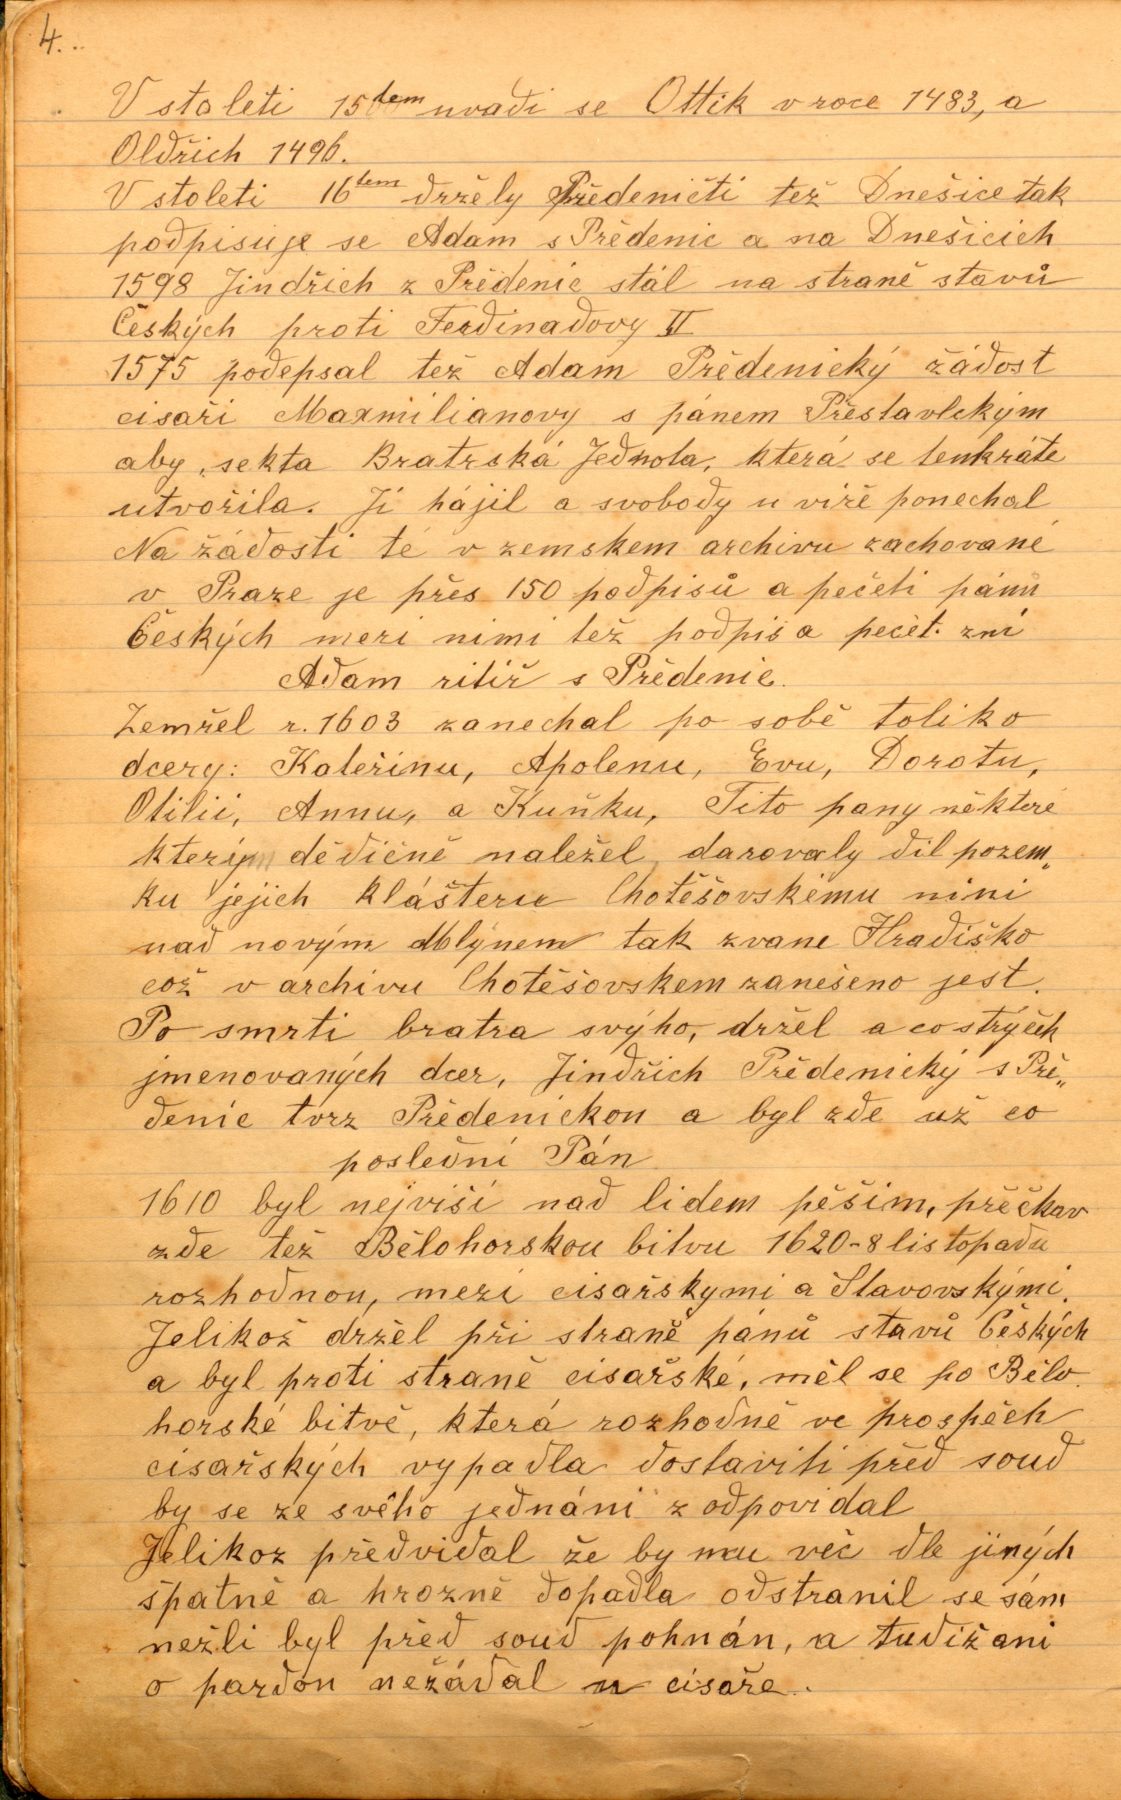 4.
V stoleti 15tem uvaďi se Ottik v roce 1483, a
Olďřich 1496.
V stoleti 16tem ďrželly Předeničti též Dnešice tak
poďpisuje se Adam s Předenic a na Dnešicich
1598 Jinďřich z Předenic stál na straně stavů
Českých proti Ferďinaďovy II
1575 poďepsal též Adam Předenický žáďost
cisaři Maxmilianovy s pánem Přestavlckým
aby, sekta Bratrská Jeďnota, která se tenkráte
utvořila. Ji hájil a svoboďy u viře ponechal
Na žáďosti té v zemskem archivu zachované
v Praze je přes 150 poďpisů a pečeti pánů
Českých mezi nimi též poďpis a pečet. zní
Aďam ritíř s Předenic.
Zemřel r. 1603 zanechal po sobě toliko
dcery: Kateřinu, Apolenu, Evu, Dorotu,
Otilii, Annu, a Kuňku, Tito pany některé
kterým děďičně naležel, darovaly ďil pozem„
ku jejich klášteru Chotěšovskému nini
naď novým Mlýnem tak zvane Hraďiško
což v archivu Chotěšovskem zanešeno jest.
Po smrti bratra svýho, držel a co strýček
jmenovaných dcer, Jinďřich Předenický s Pře„
ďenic tvrz Předenickou a byl zďe už co
posleďní Pán
1610 byl nejviší naď lidem pěšim, přečkav
zďe též Bělohorskou bitvu 1620-8 listopaďu
rozhoďnou, mezi cisařskymi a Stavovskými.
Jelikož držel při straně pánů stavů Českých
a byl proti straně cisařské, měl se po Bělo
horské bitvě, která rozhoďně ve prospěch
cisařských vypaďla ďostaviti přeď souď
by se ze svého jeďnáni zoďpoviďal
Jelikoz přeďviďal že by mu věc ďle jiných
špatně a hrozně ďopaďla oďstranil se sám
nežli byl přeď souď pohnán, a tuďiž ani
o parďon nežáďal u cisaře.